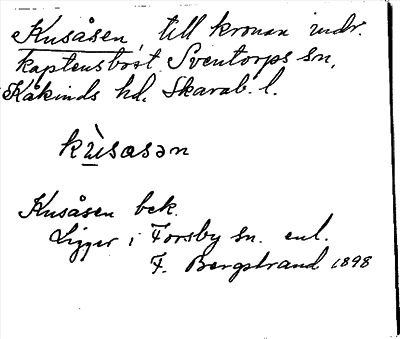 Kusåsen, till kronan indr.
kaptensbost. Sventorps sn,
Kåkinds hd, Skarab. l.
kùsasən
Kusåsen bek.
Ligger i Forsby sn. enl.
F. Bergstrand 1898